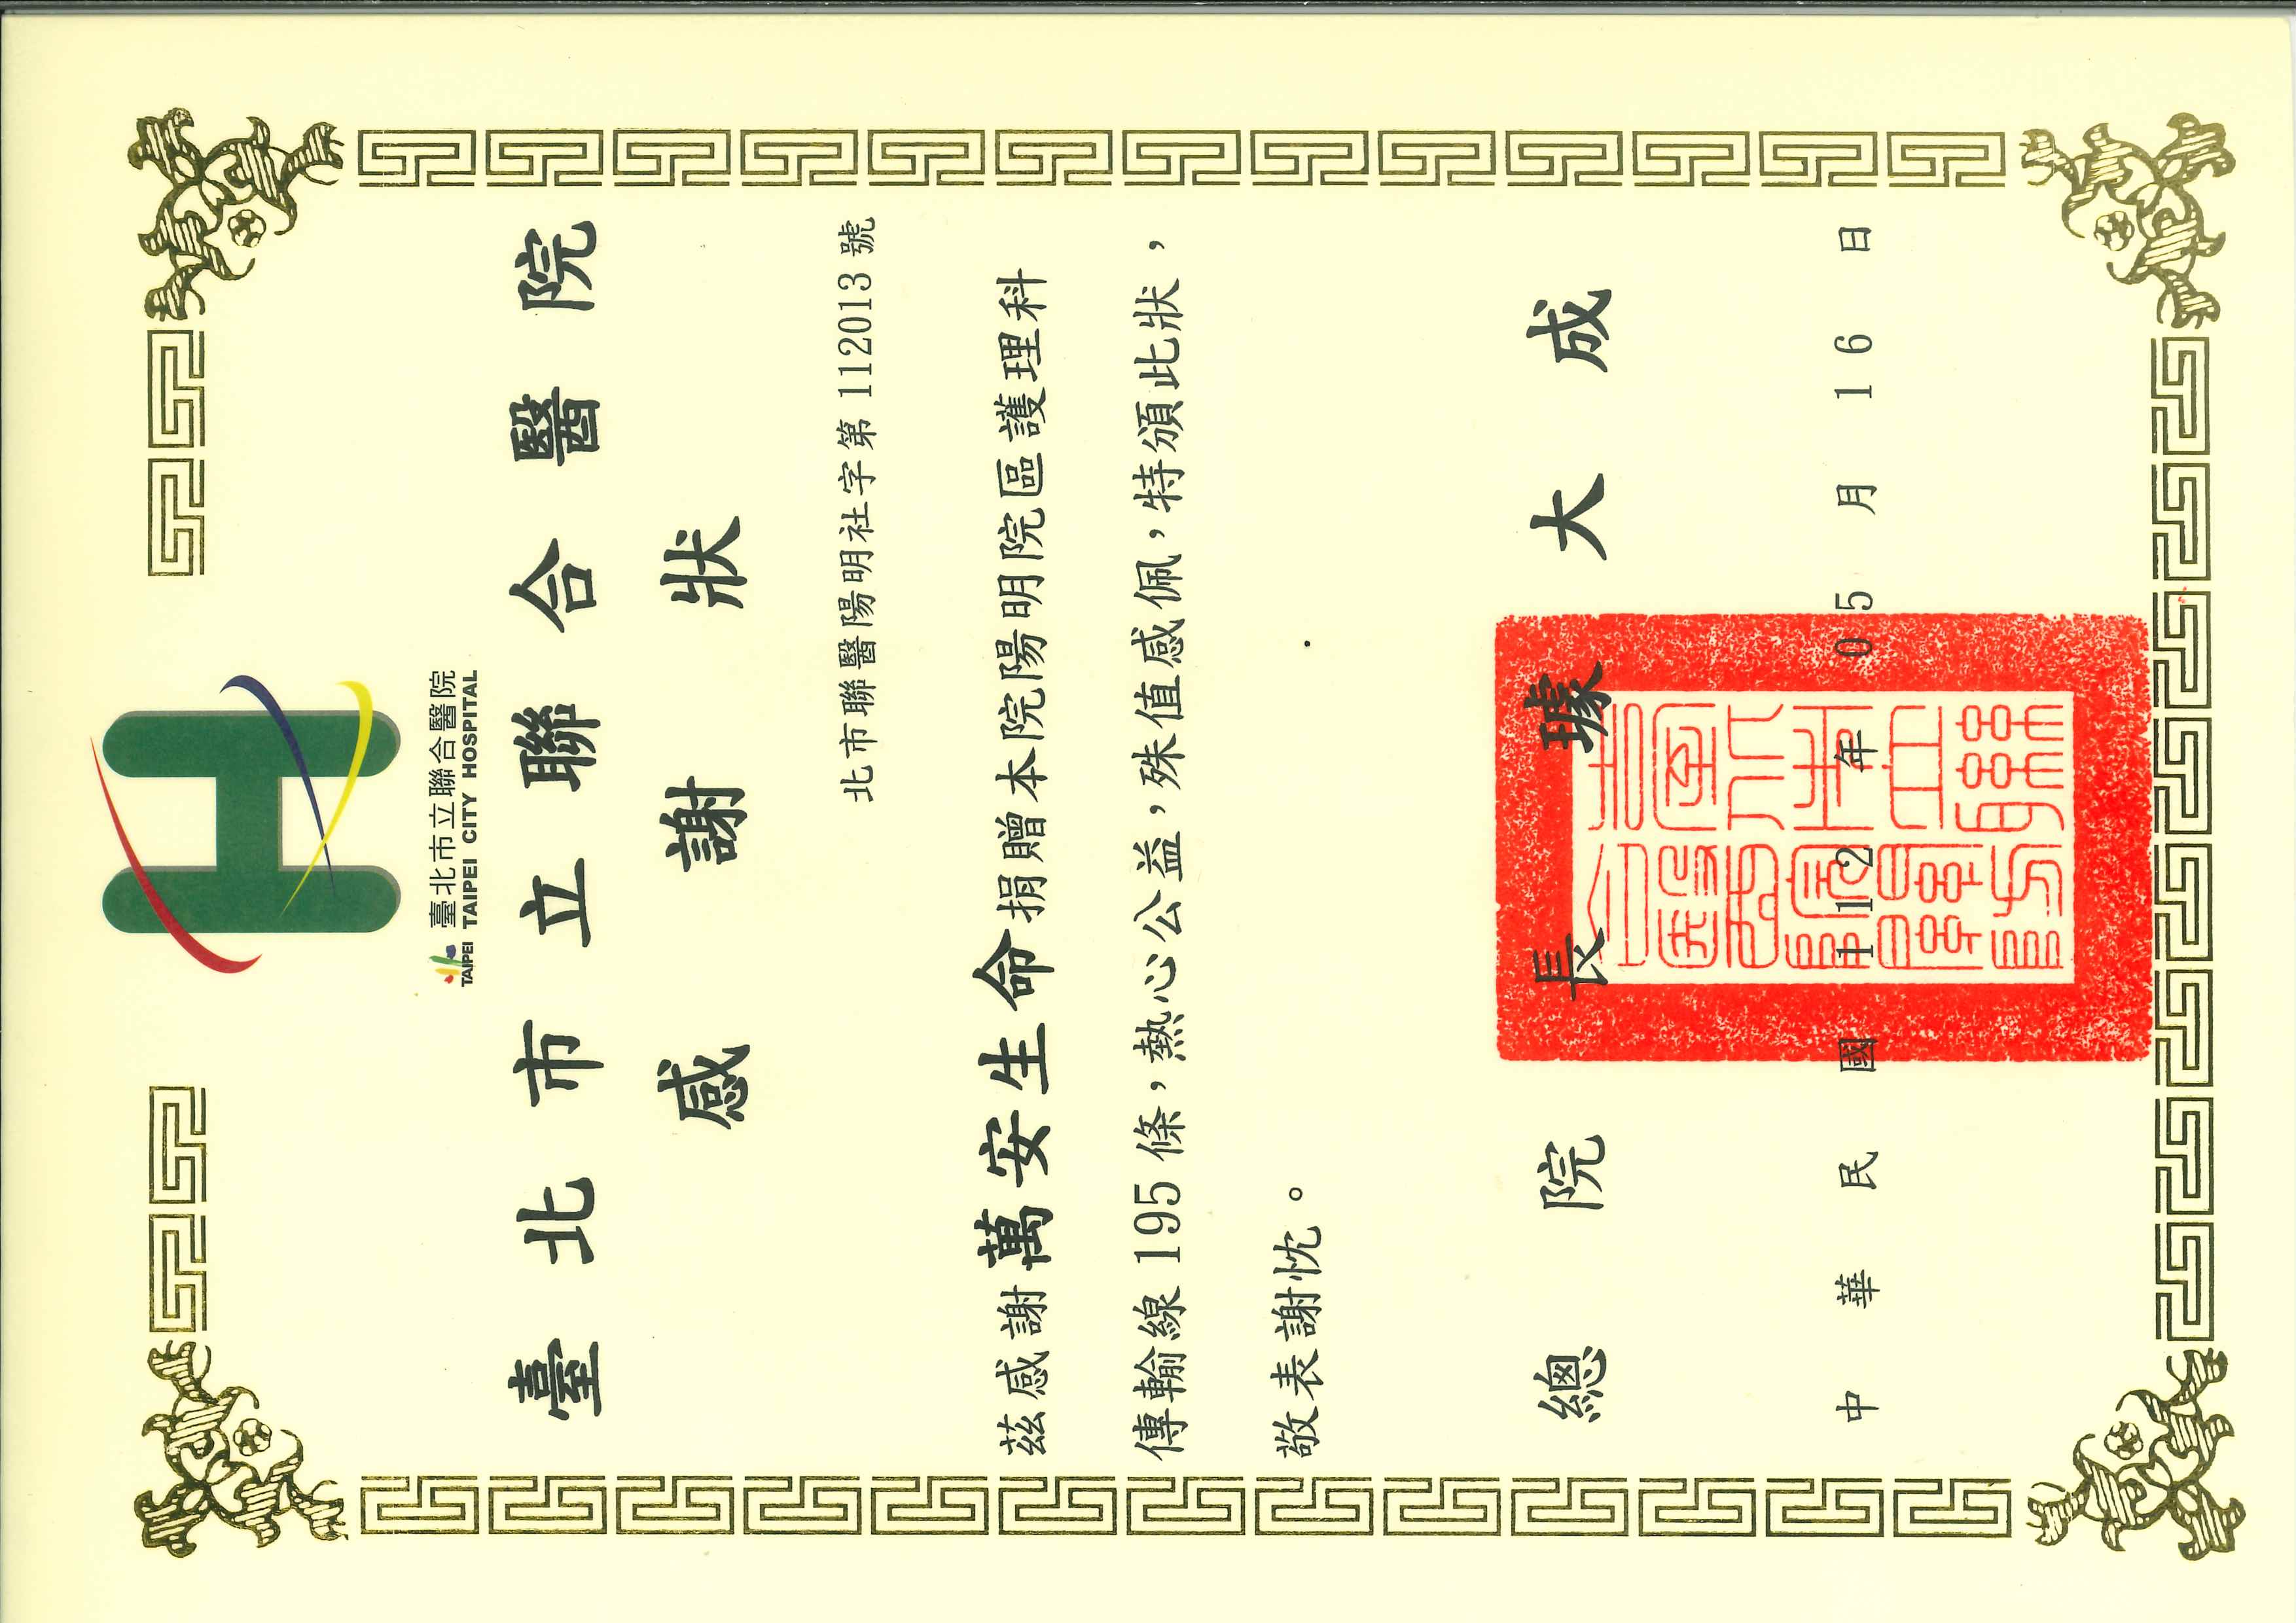 臺北市立聯合醫院
TAIPEI TAIPEI CITY HOSPITAL
臺北市立聯合醫院
感謝狀
北市聯醫陽明社字第 112013 號
茲感謝萬安生命捐贈本院陽明院區護理科
傳輸線 195 條，熱心公益，殊值感佩，特頒此狀，
敬表謝忱。
總院長 璩大成
中華民國 112 年 05 月 16 日